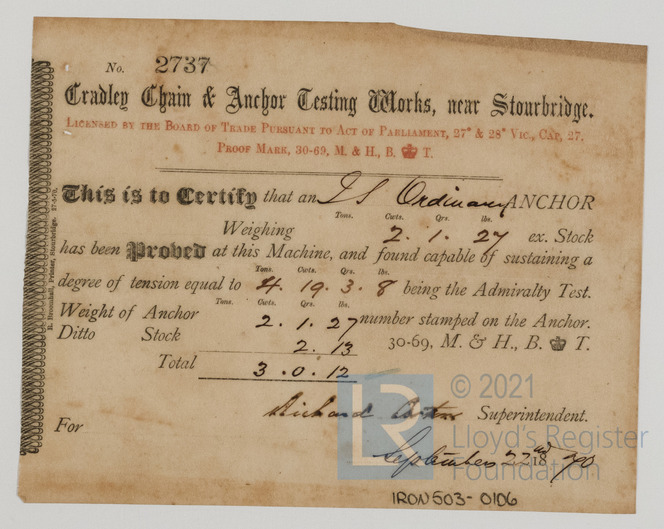 No. 2737
Cradley Chain & Anchor Testing Works, near Stourbridge.
LICENSED BY THE BOARD OF TRADE PURSUANT TO ACT OF PARLIAMENT, 27° & 28° VIC., CAP. 27.
PROOF MARK, 30-69, M. & H., B. T.
This is to Certify that an I S Ordinary ANCHOR
Tons. Cwts. Qrs. lbs.
Weighing 2 . 1 . 27 ex. Stock
has been Proved at this Machine, and found capable of sustaining a
Tons. Cwts. Qrs. lbs.
degree of tension equal to 4 . 19 . 3 . 8 being the Admiralty Test.
Tons. Cwts. Qrs. lbs.
Weight of Anchor 2 . 1 . 27 number stamped on the Anchor.
Ditto Stock 2 . 13 30-69, M. & H., B. T.
Total 3 . 0 . 12
Richard Superintendent.
For
September 22nd 18
R. Broomhall, Printer, Stourbridge.
IRON503-0106
LR
© 2021
Lloyd's Register
Foundation